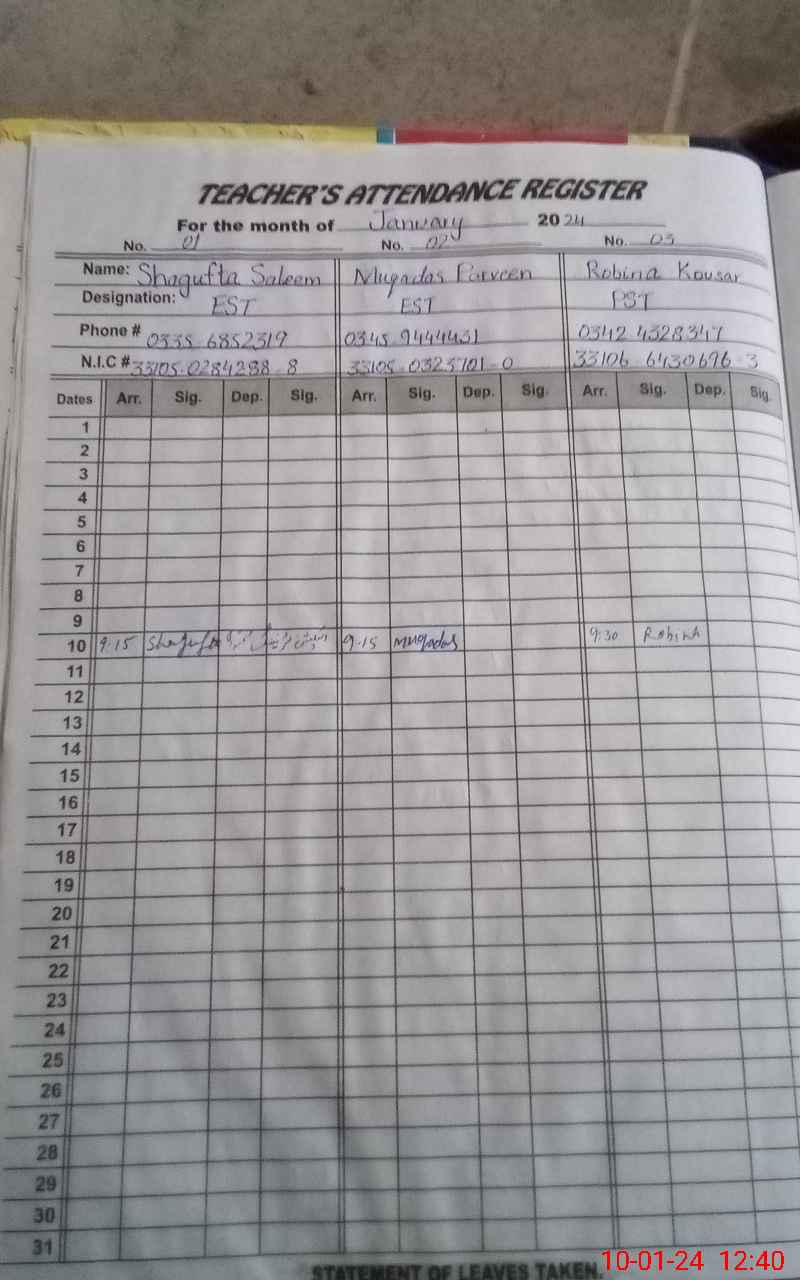 TEACHER'S ATTENDANCE REGISTER
For the month of January 2024
No. 01 No. 02 No. 03
Name: Shagufta Saleem Muqadas Parveen Robina Kousar
Designation: EST EST PST
Phone # 0335 6852319 0345 9444431 0342 4328347
N.I.C # 33105-0284288-8 33105-0323701-0 33106-6430696-3
Dates Arr. Sig. Dep. Sig. Arr. Sig. Dep. Sig. Arr. Sig. Dep. Sig.
1
2
3
4
5
6
7
8
9
10 9:15 Shagufta 9-15 Muqadas 9:30 Robina
11
12
13
14
15
16
17
18
19
20
21
22
23
24
25
26
27
28
29
30
31
STATEMENT OF LEAVES TAKEN
10-01-24 12:40